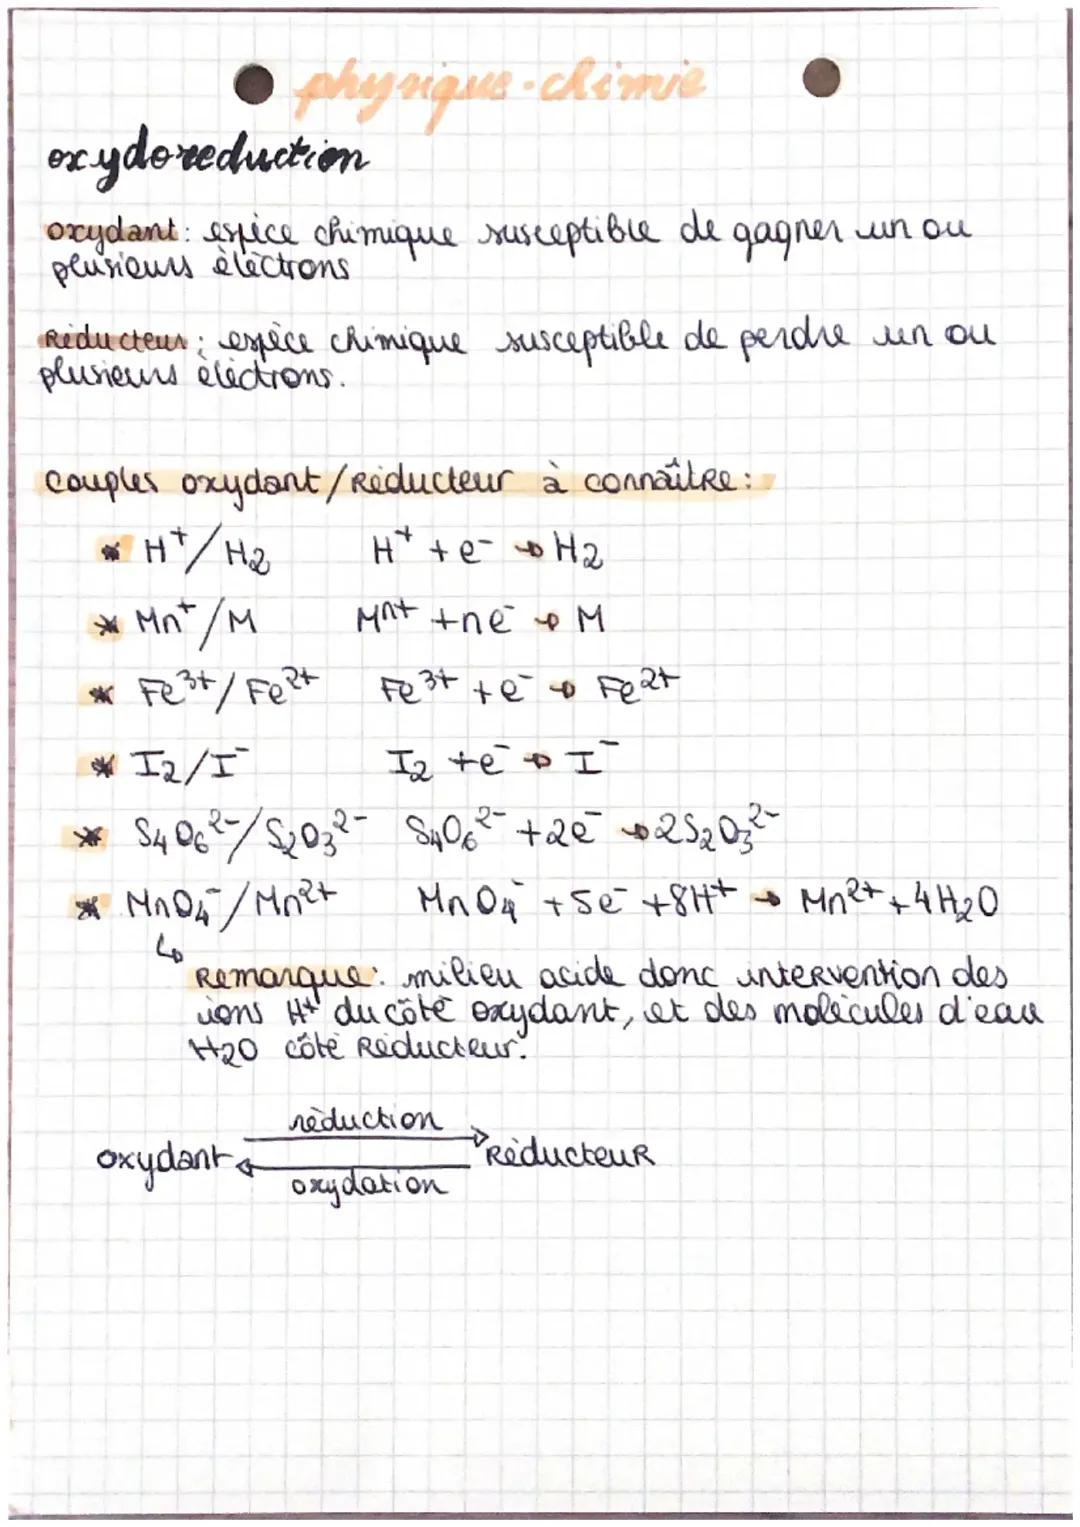 physique-chimie
oxydoreduction
oxydant: espèce chimique susceptible de gagner un ou
plusieurs électrons
Réducteur: espèce chimique susceptible de perdre un ou
plusieurs électrons.
Couples oxydant/Réducteur à connaîtRe:
* H⁺/H₂ H⁺ + e⁻ → H₂
* Mn⁺/M Mⁿ⁺ + ne⁻ → M
* Fe³⁺/Fe²⁺ Fe³⁺ + e⁻ → Fe²⁺
* I₂/I⁻ I₂ + e⁻ → I⁻
* S₄O₆²⁻/S₂O₃²⁻ S₄O₆²⁻ + 2e⁻ → 2S₂O₃²⁻
* MnO₄⁻/Mn²⁺ MnO₄⁻ + 5e⁻ + 8H⁺ → Mn²⁺ + 4H₂O
↳ Remarque: milieu acide donc inteRvention des
ions H⁺ du côté oxydant, et des molécules d'eau
H₂O côté Réducteur.
réduction
oxydant RéducteuR
oxydation